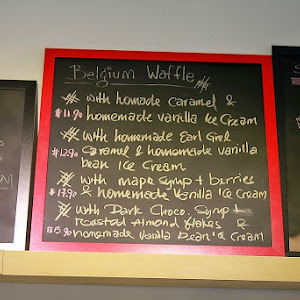 Belgium Waffle
with homade caramel &
$11.90 homemade vanilla Ice Cream
with homemade Earl Grel
$12.90 Caramel & homemade vanilla
bean Ice Cream
with maple Syrup + berries
$13.90 & homemade Vanilla Ice Cream
with Dark Choco. Syrup +
roasted Almond flakes &
$15.90 homemade Vanilla Bean Ice Cream